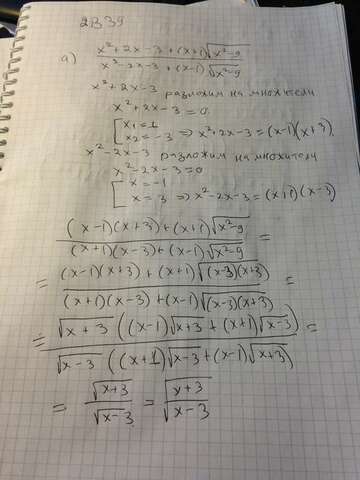 2В39
а) (x²+2x-3+(x+1)√(x²-9))/(x²-2x-3+(x-1)√(x²-9))
x²+2x-3 разложим на множители
x²+2x-3=0
[x₁=1
x₂=-3 ⇒ x²+2x-3=(x-1)(x+3)
x²-2x-3 разложим на множители
x²-2x-3=0
[x=-1
x=3 ⇒ x²-2x-3=(x+1)(x-3)
((x-1)(x+3)+(x+1)√(x²-9))/((x+1)(x-3)+(x-1)√(x²-9)) =
= ((x-1)(x+3)+(x+1)√((x-3)(x+3)))/((x+1)(x-3)+(x-1)√((x-3)(x+3))) =
= (√(x+3) ((x-1)√(x+3)+(x+1)√(x-3)))/(√(x-3) ((x+1)√(x-3)+(x-1)√(x+3))) =
= √(x+3)/√(x-3) = √((x+3)/(x-3))